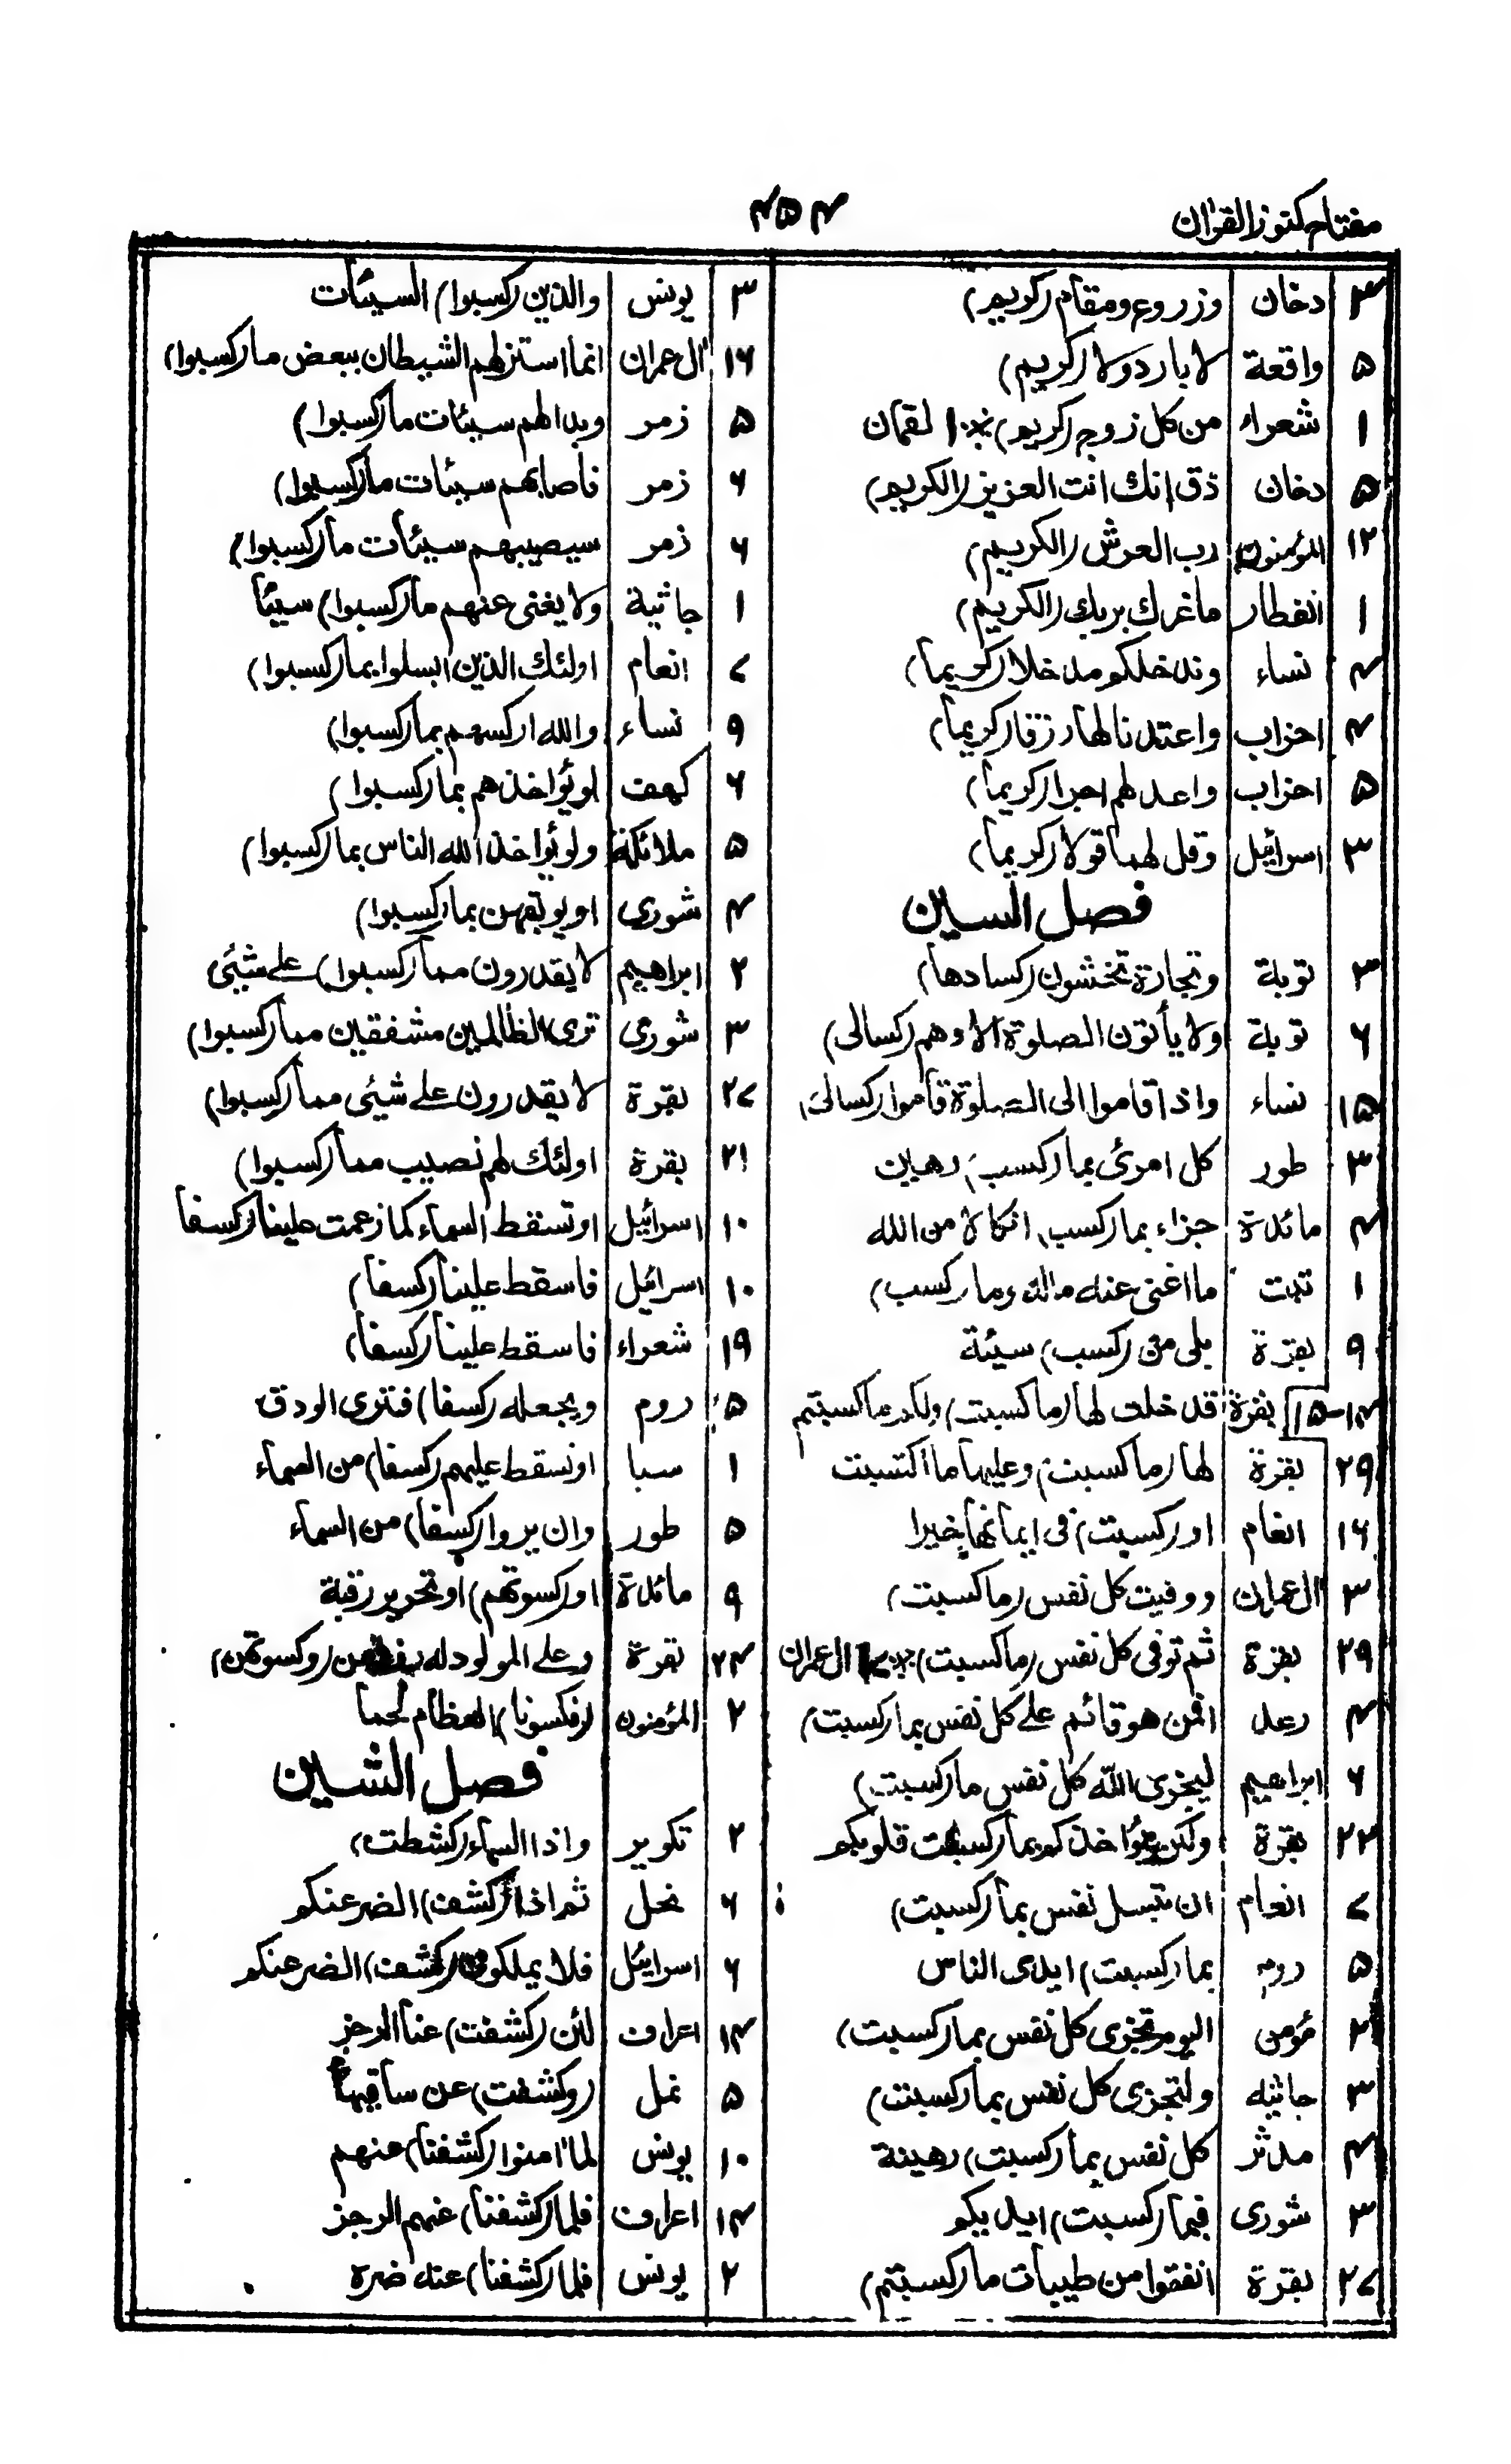 مفتاح كنوز القران
۴۵۴
۳ دخان وزروع ومقام (كريم)
۵ واقعة لا بارد ولا (كريم)
۱ شعراء من كل زوج (كريم) ۱ لقمان
۵ دخان ذق انك انت العزيز (الكريم)
۱۲ المؤمنون رب العرش (الكريم)
۱ انفطار ما غرك بربك (الكريم)
۴ نساء وندخلكم مدخلا (كريما)
۴ احزاب واعتدنا لها رزقا (كريما)
۵ احزاب واعد لهم اجرا (كريما)
۳ اسرائيل وقل لهما قولا (كريما)
فصل السين
۳ توبة وتجارة تخشون (كسادها)
۶ توبة ولا يأتون الصلوة الا وهم (كسالى)
۱۵ نساء واذا قاموا الى الصلوة قاموا (كسالى)
۳ طور كل امرئ بما (كسب) رهين
۴ مائدة جزاء بما (كسبا) نكالا من الله
۱ تبت ما اغنى عنه ماله وما (كسب)
۹ بقرة بلى من (كسب) سيئة
۱۴-۱۵ بقرة قد خلت لها (ما كسبت) ولكم ما كسبتم
۲۹ بقرة لها (ما كسبت) وعليها ما اكتسبت
۱۶ انعام او (كسبت) فى ايمانها خيرا
۳ ال عمران ووفيت كل نفس (ما كسبت)
۲۹ بقرة ثم توفى كل نفس (ما كسبت) ال عمران
۴ رعد افمن هو قائم على كل نفس بما (كسبت)
۶ ابراهيم ليجزى الله كل نفس ما (كسبت)
۲۲ بقرة ولكن يؤاخذكم بما (كسبت) قلوبكم
۷ انعام ان تبسل نفس بما (كسبت)
۵ روم بما (كسبت) ايدى الناس
۲ مؤمن اليوم تجزى كل نفس بما (كسبت)
۳ جاثيه ولتجزى كل نفس بما (كسبت)
۴ مدثر كل نفس بما (كسبت) رهينة
۳ شورى فبما (كسبت) ايديكم
۲۷ بقرة انفقوا من طيبات ما (كسبتم)
۳ يونس والذين (كسبوا) السيئات
۱۶ ال عمران انما استزلهم الشيطان ببعض ما (كسبوا)
۵ زمر وبدا لهم سيئات ما (كسبوا)
۶ زمر فاصابهم سيئات ما (كسبوا)
۶ زمر سيصيبهم سيئات ما (كسبوا)
۱ جاثية ولا يغنى عنهم ما (كسبوا) شيئا
۷ انعام اولئك الذين ابسلوا بما (كسبوا)
۹ نساء والله اركسهم بما (كسبوا)
۶ كهف لو يؤاخذهم بما (كسبوا)
۵ ملائكة ولو يؤاخذ الله الناس بما (كسبوا)
۴ شورى او يوبقهن بما (كسبوا)
۲ ابراهيم لا يقدرون مما (كسبوا) على شيئ
۳ شورى ترى الظالمين مشفقين مما (كسبوا)
۲۷ بقرة لا يقدرون على شيئ مما (كسبوا)
۲۱ بقرة اولئك لهم نصيب مما (كسبوا)
۱۰ اسرائيل او تسقط السماء كما زعمت علينا (كسفا
۱۰ اسرائيل فاسقط علينا (كسفا)
۱۹ شعراء فاسقط علينا (كسفا)
۵ روم ويجعله (كسفا) فترى الودق
۱ سبا او نسقط عليهم (كسفا) من السماء
۵ طور وان يروا (كسفا) من السماء
۹ مائدة او (كسوتهم) او تحرير رقبة
۲۴ بقرة وعلى المولود له (وكسوتهن)
۲ المؤمنون (فكسونا) العظام لحما
فصل الشين
۲ تكوير واذا السماء (كشطت)
۶ نحل ثم اذا (كشف) الضر عنكم
۶ اسرائيل فلا يملكون (كشف) الضر عنكم
۱۴ اعراف لئن (كشفت) عنا الرجز
۵ نمل (وكشفت) عن ساقيها
۱۰ يونس لما امنوا (كشفنا) عنهم
۱۴ اعراف فلما (كشفنا) عنهم الرجز
۲ يونس فلما (كشفنا) عنه ضره